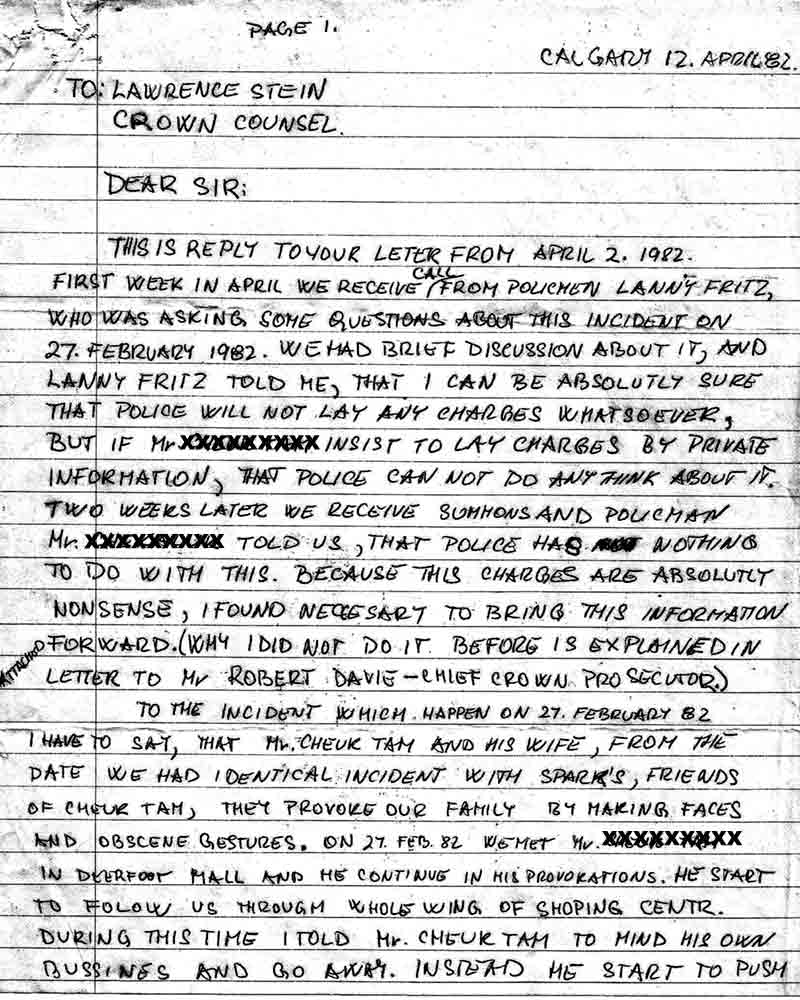 PAGE 1.
CALGARY 12. APRIL 82.
TO: LAWRENCE STEIN
CROWN COUNSEL.
DEAR SIR:
THIS IS REPLY TO YOUR LETER FROM APRIL 2. 1982.
FIRST WEEK IN APRIL WE RECEIVE CALL FROM POLICMEN LANNY FRITZ,
WHO WAS ASKING SOME QUESTIONS ABOUT THIS INCIDENT ON
27. FEBRUARY 1982. WE HAD BRIEF DISCUSSION ABOUT IT, AND
LANNY FRITZ TOLD ME, THAT I CAN BE ABSOLUTLY SURE
THAT POLICE WILL NOT LAY ANY CHARGES WHATSOEVER,
BUT IF Mr. XXXXXXXXX INSIST TO LAY CHARGES BY PRIVATE
INFORMATION, THAT POLICE CAN NOT DO ANYTHINK ABOUT IT.
TWO WEEKS LATER WE RECEIVE SUMMONS AND POLICMAN
Mr. XXXXXXXXX TOLD US, THAT POLICE HAS NOTHING
TO DO WITH THIS. BECAUSE THIS CHARGES ARE ABSOLUTLY
NONSENSE, I FOUND NECCESARY TO BRING THIS INFORMATION
FORWARD. (WHY I DID NOT DO IT BEFORE IS EXPLAINED IN
ATTACHED
LETTER TO Mr ROBERT DAVIE - CHIEF CROWN PROSECUTOR.)
TO THE INCIDENT WHICH HAPPEN ON 27. FEBRUARY 82
I HAVE TO SAY, THAT Mr. CHEUK TAM AND HIS WIFE, FROM THE
DATE WE HAD IDENTICAL INCIDENT WITH SPARK'S, FRIENDS
OF CHEUK TAM, THEY PROVOKE OUR FAMILY BY MAKING FACES
AND OBSCENE GESTURES. ON 27. FEB. 82 WE MET Mr. XXXXXXXXX
IN DEERFOOT MALL AND HE CONTINUE IN HIS PROVOKATIONS. HE START
TO FOLOW US THROUGH WHOLE WING OF SHOPING CENTR.
DURING THIS TIME I TOLD Mr. CHEUK TAM TO MIND HIS OWN
BUSSINES AND GO AWAY. INSTEAD HE START TO PUSH